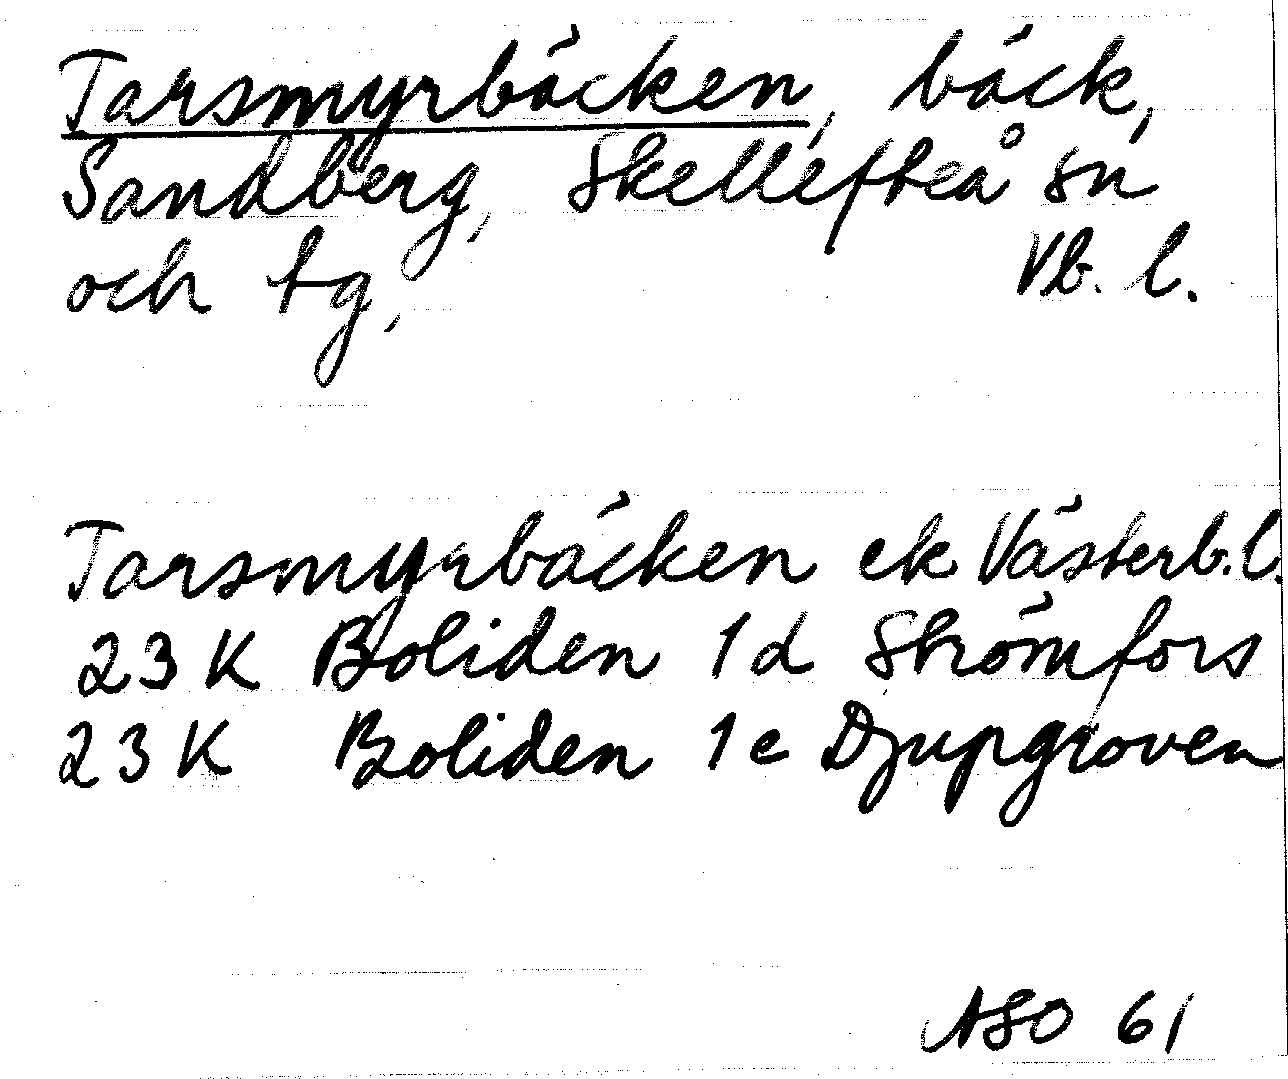 Tarsmyrbäcken, bäck,
Sandberg, Skellefteå sn
och tg, Vb. l.
Tarsmyrbäcken ek Västerb. l.
23 K Boliden 1d Strömfors
23 K Boliden 1e Djupgroven
ASO 61